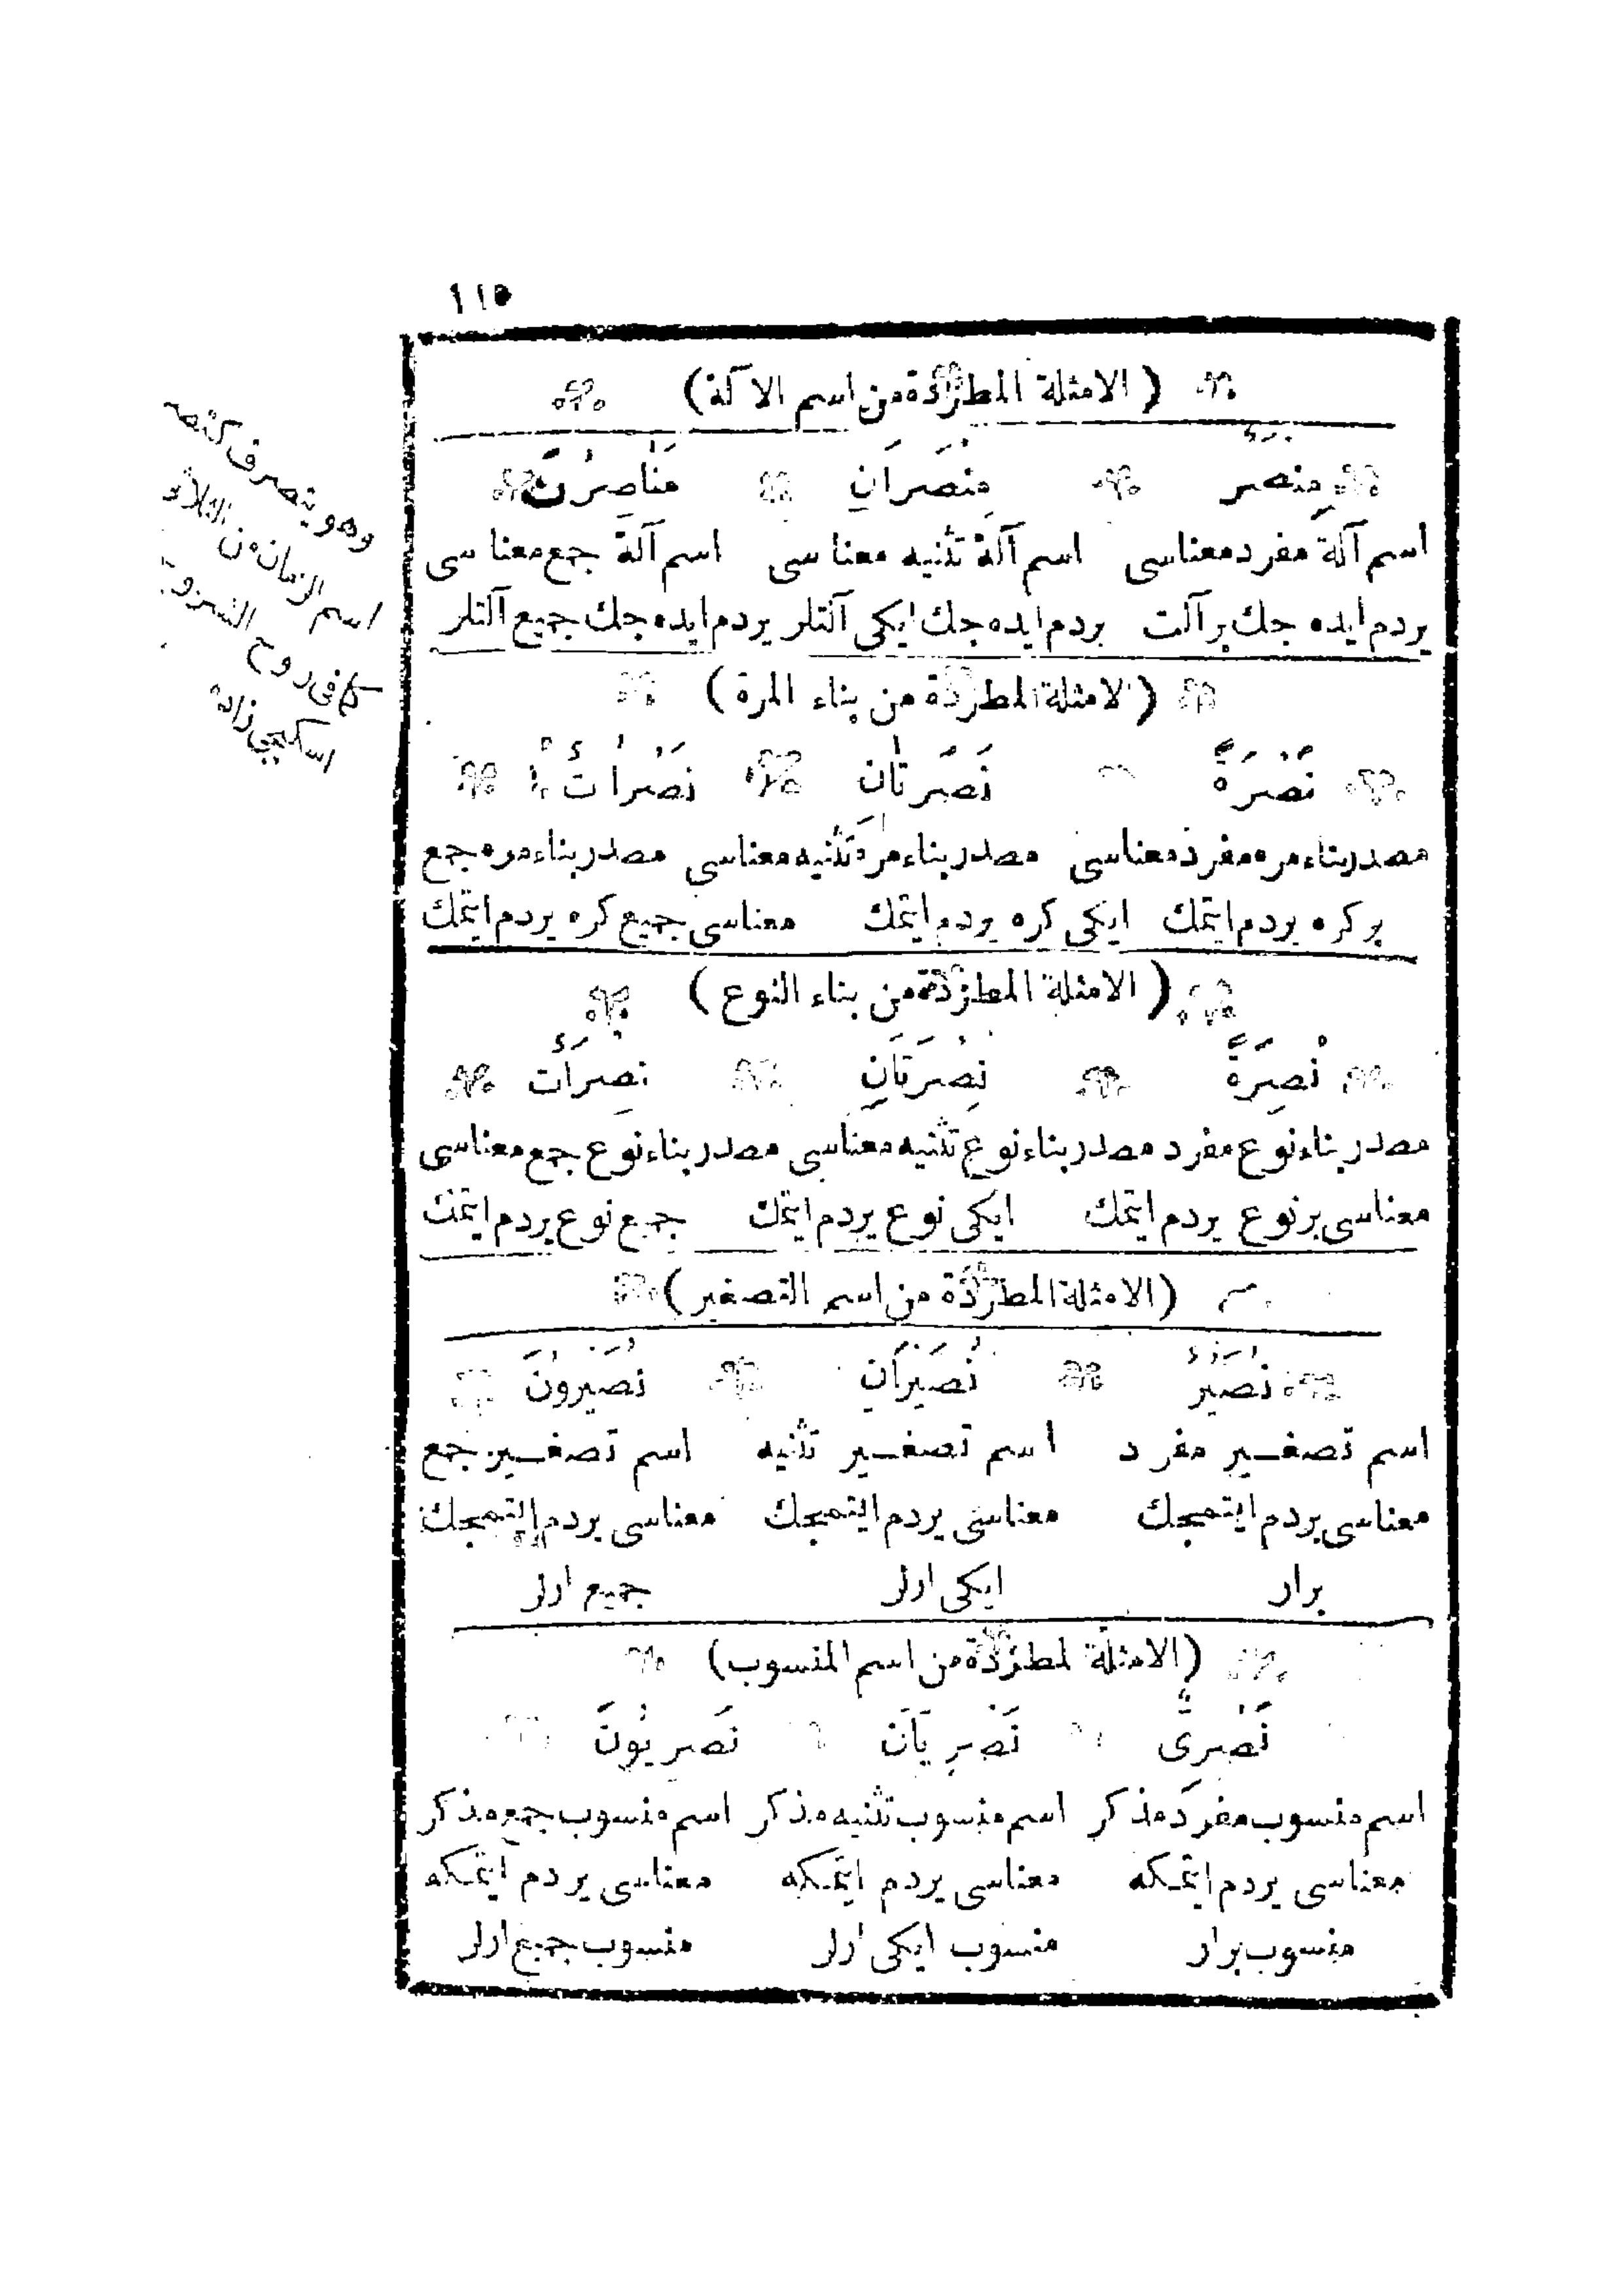 ١١٥
(الامثلة المطردة من اسم الآلة)
مِنصَر مِنْصَرَانِ مَنَاصِرُ
اسم آلة مفرد معناسى اسم آلة تثنيه معناسى اسم آلة جمع معناسى
يردم ايده جك بر آلت يردم ايده جك ايكى آلتلر يردم ايده جك جميع آلتلر
(الامثلة المطردة من بناء المرة)
نَصْرَةً نَصْرَتَان نَصَرَاتٌ
مصدر بناء مره مفرد معناسى مصدر بناء مره تثنيه معناسى مصدر بناء مره جمع
بر كره يردم ايتمك ايكى كره يردم ايتمك معناسى جميع كره يردم ايتمك
(الامثلة المطردة من بناء النوع)
نِصْرَةً نِصْرَتَانِ نِصْرَات
مصدر بناء نوع مفرد مصدر بناء نوع تثنيه معناسى مصدر بناء نوع جمع معناسى
معناسى بر نوع يردم ايتمك ايكى نوع يردم ايتمك جمع نوع يردم ايتمك
(الامثلة المطردة من اسم التصغير)
نُصَيْرٌ نُصَيْرَانِ نُصَيْرُونَ
اسم تصغير مفرد اسم تصغير تثنيه اسم تصغير جمع
معناسى يردم ايتمجك معناسى يردم ايتمجك معناسى يردم ايتمجك
بر ار ايكى ارلر جميع ارلر
(الامثلة المطردة من اسم المنسوب)
نَصْرِىٌّ نَصْرِيَّان نَصْرِيُّونَ
اسم منسوب مفرد مذكر اسم منسوب تثنيه مذكر اسم منسوب جمع مذكر
معناسى يردم ايتمكه معناسى يردم ايتمكه معناسى يردم ايتمكه
منسوب بر ار منسوب ايكى ارلر منسوب جميع ارلر
وهو يتصرف كتصر
اسم الزمان من الثلاثى
كما فى روح الشروح
اسكيجى زاده